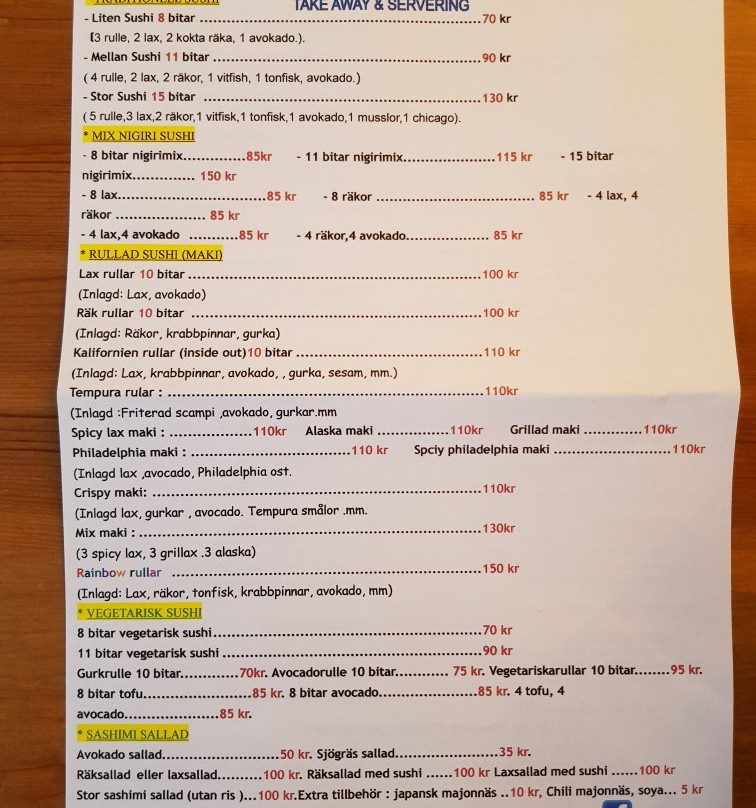 * TRADITIONELL SUSHI
TAKE AWAY & SERVERING
- Liten Sushi 8 bitar ........................................70 kr
(3 rulle, 2 lax, 2 kokta räka, 1 avokado.).
- Mellan Sushi 11 bitar ........................................90 kr
( 4 rulle, 2 lax, 2 räkor, 1 vitfish, 1 tonfisk, avokado.)
- Stor Sushi 15 bitar ........................................130 kr
( 5 rulle,3 lax,2 räkor,1 vitfisk,1 tonfisk,1 avokado,1 musslor,1 chicago).
* MIX NIGIRI SUSHI
- 8 bitar nigirimix.............85kr - 11 bitar nigirimix...................115 kr - 15 bitar
nigirimix............. 150 kr
- 8 lax..........................85 kr - 8 räkor ................................. 85 kr - 4 lax, 4
räkor .................. 85 kr
- 4 lax,4 avokado ..........85 kr - 4 räkor,4 avokado................. 85 kr
* RULLAD SUSHI (MAKI)
Lax rullar 10 bitar ........................................100 kr
(Inlagd: Lax, avokado)
Räk rullar 10 bitar ........................................100 kr
(Inlagd: Räkor, krabbpinnar, gurka)
Kalifornien rullar (inside out)10 bitar ........................110 kr
(Inlagd: Lax, krabbpinnar, avokado, , gurka, sesam, mm.)
Tempura rular : ........................................110kr
(Inlagd :Friterad scampi ,avokado, gurkar.mm
Spicy lax maki : .................110kr Alaska maki ...............110kr Grillad maki ............110kr
Philadelphia maki : .........................110 kr Spciy philadelphia maki ........................110kr
(Inlagd lax ,avocado, Philadelphia ost.
Crispy maki: ........................................110kr
(Inlagd lax, gurkar , avocado. Tempura smålor .mm.
Mix maki : ........................................130kr
(3 spicy lax, 3 grillax .3 alaska)
Rainbow rullar ........................................150 kr
(Inlagd: Lax, räkor, tonfisk, krabbpinnar, avokado, mm)
* VEGETARISK SUSHI
8 bitar vegetarisk sushi........................................70 kr
11 bitar vegetarisk sushi ........................................90 kr
Gurkrulle 10 bitar............70kr. Avocadorulle 10 bitar........... 75 kr. Vegetariskarullar 10 bitar........95 kr.
8 bitar tofu......................85 kr. 8 bitar avocado....................85 kr. 4 tofu, 4
avocado...................85 kr.
* SASHIMI SALLAD
Avokado sallad.........................50 kr. Sjögräs sallad.....................35 kr.
Räksallad eller laxsallad.........100 kr. Räksallad med sushi ......100 kr Laxsallad med sushi ......100 kr
Stor sashimi sallad (utan ris )...100 kr.Extra tillbehör : japansk majonnäs ..10 kr, Chili majonnäs, soya... 5 kr